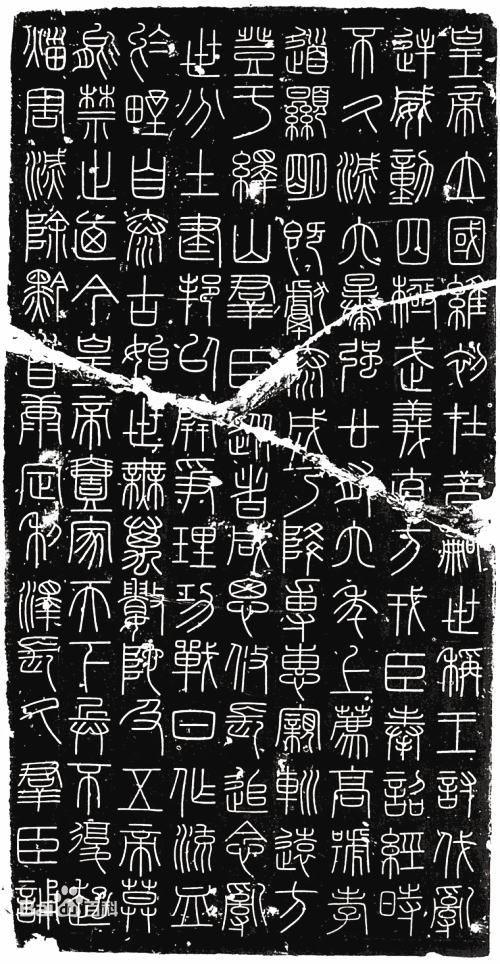 皇帝立國維初在昔嗣世稱王討伐亂
逆威動四極武義直方戎臣奉詔經時
不久滅六暴強廿有六年上薦高號孝
道顯明既獻泰成乃降專惠親巡遠方
登于繹山羣臣從者咸思攸長追念亂
世分土建邦以開爭理功戰日作流血
於野自泰古始世無萬數陀及五帝莫
能禁止迺今皇帝壹家天下兵不復起
災害滅除黔首康定利澤長久羣臣誦
Baidu百科